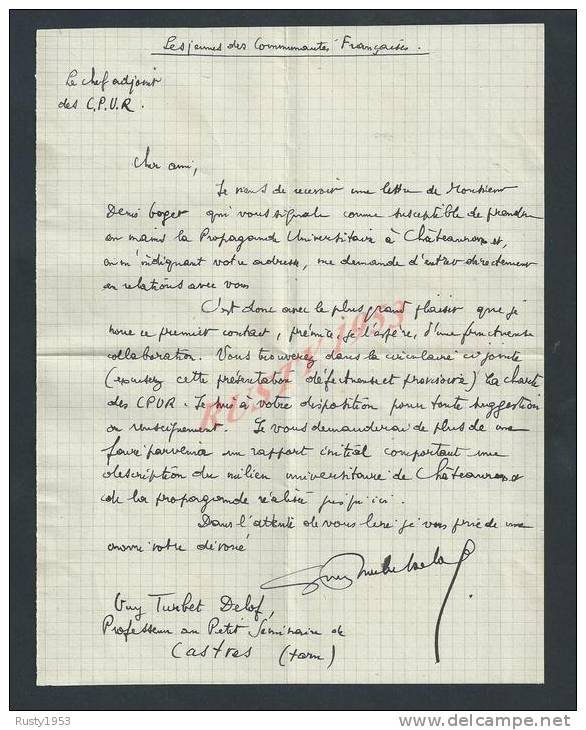 Les jeunes des Communautés Françaises.
Le chef adjoint
des C.P.U.R.
Cher ami,
Je viens de recevoir une lettre de Monsieur
Denis Boget qui vous signale comme susceptible de prendre
en mains la Propagande Universitaire à Châteauroux et,
en m'indiquant votre adresse, me demande d'entrer directement
en relations avec vous
C'est donc avec le plus grand plaisir que je
noue ce premier contact, prémice, je l'espère, d'une fructueuse
collaboration. Vous trouverez dans la circulaire ci jointe
(excusez cette présentation défectueuse et provisoire) la charte
des CPUR. Je suis à votre disposition pour toute suggestion
ou renseignement. Je vous demanderai de plus de me
faire parvenir un rapport initial comportant une
description du milieu universitaire de Châteauroux et
de la propagande réalisée jusqu'ici.
Dans l'attente de vous lire je vous prie de me
croire votre dévoué
Guy Turbet Delof,
Professeur au Petit Séminaire de
Castres (Tarn)
RUSTY1953
Rusty1953
delcampe.net